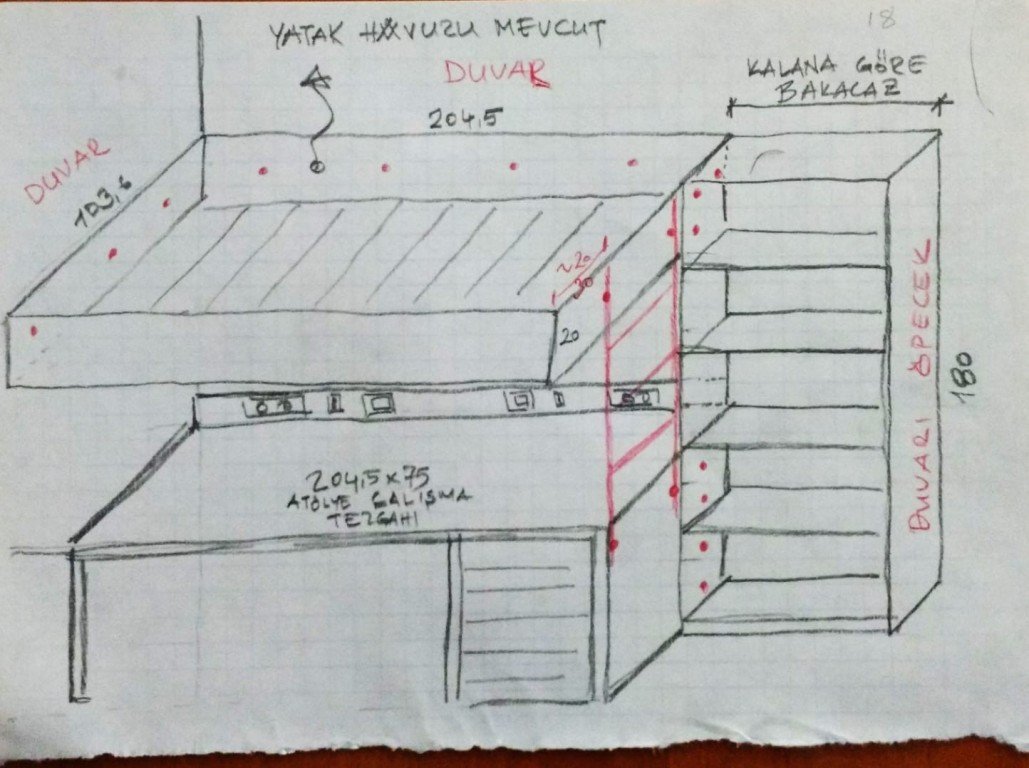 18
YATAK HAVUZU MEVCUT
DUVAR
204,5
KALANA GÖRE
BAKACAZ
DUVAR
103,6
~20
30
20
204,5x75
ATÖLYE ÇALIŞMA
TEZGAHI
DUVARI ÖPECEK
180